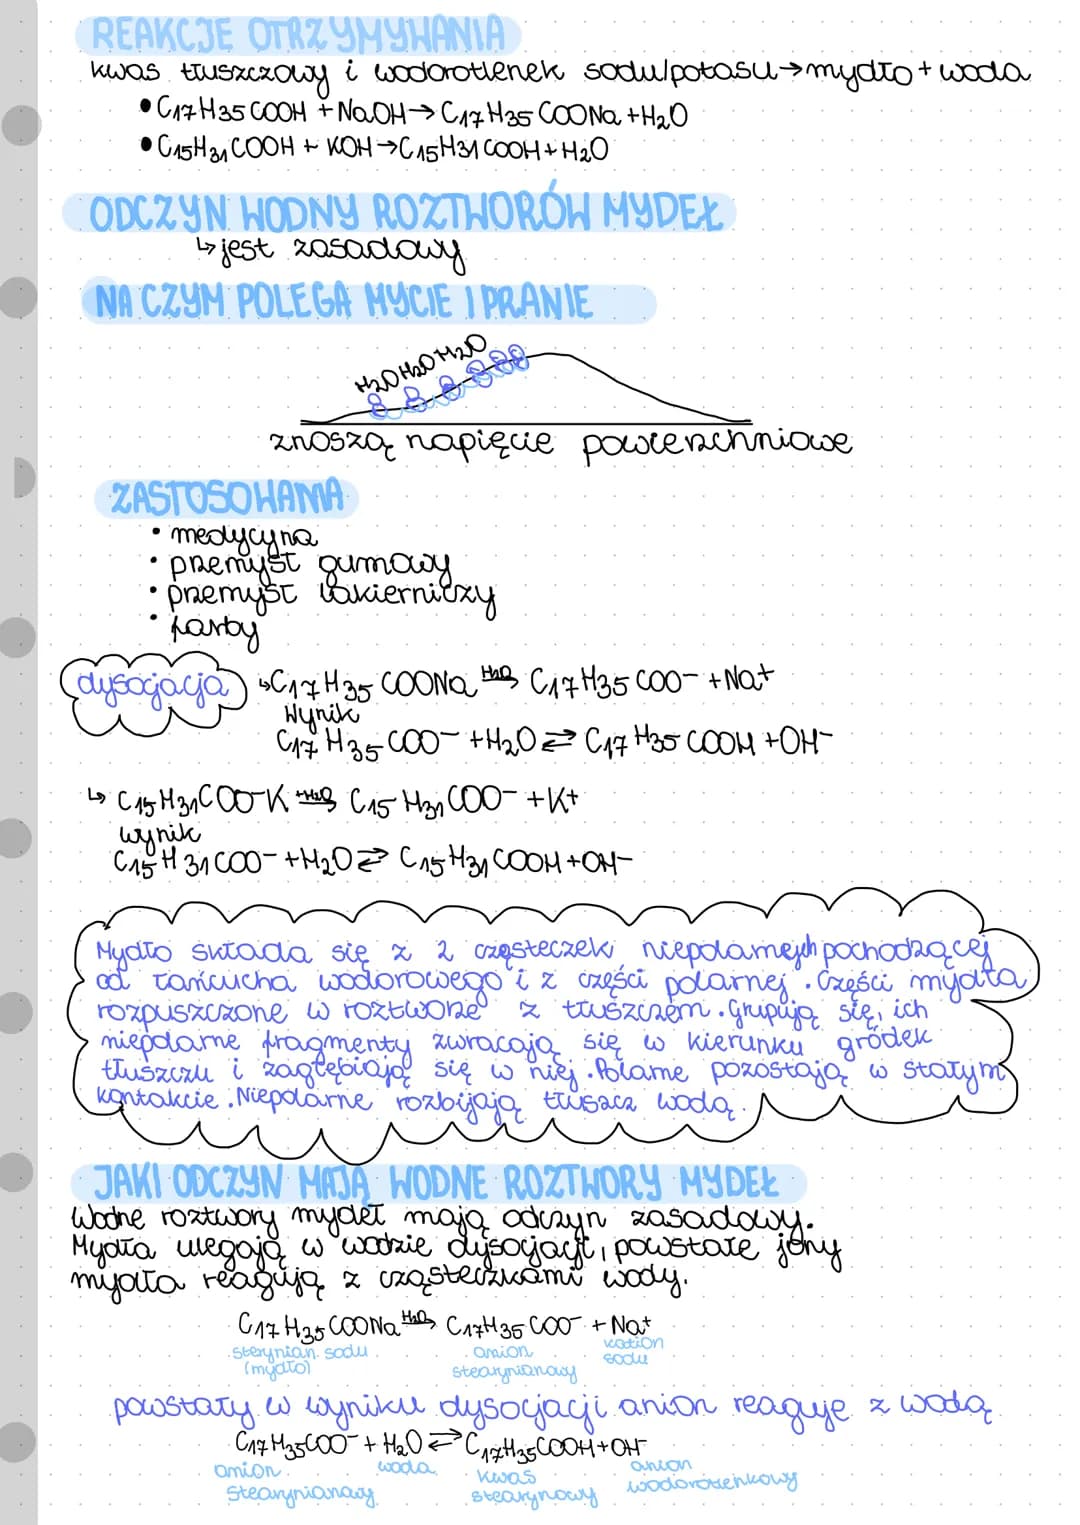 REAKCJE OTRZYMYWANIA
kwas tłuszczowy i wodorotlenek sodu/potasu→mydło + woda
• C17H35COOH + NaOH → C17H35COONa + H2O
• C15H31COOH + KOH → C15H31COOH + H2O
ODCZYN WODNY ROZTWORÓW MYDEŁ
↳ jest zasadowy
NA CZYM POLEGA MYCIE I PRANIE
H2O H2O H2O
znoszą napięcie powierzchniowe
ZASTOSOWANIA
• medycyna
• przemysł gumowy
• przemysł lakierniczy
• farby
dysocjacja
↳ C17H35COONa H2O→ C17H35COO- + Na+
Wynik
C17H35COO- + H2O ⇄ C17H35COOH + OH-
↳ C15H31COO-K +H2O→ C15H31COO- + K+
wynik
C15H31COO- + H2O ⇄ C15H31COOH + OH-
Mydło składa się z 2 cząsteczek, niepolarnejh pochodzącej
od łańcucha wodorowego i z części polarnej. Części mydła
rozpuszczone w roztworze z tłuszczem. Grupują się, ich
niepolarne fragmenty zwracają się w kierunku gródek
tłuszczu i zagłębiają się w niej. Polarne pozostają w stałym
kontakcie. Niepolarne rozbijają tłuszcz wodą.
JAKI ODCZYN MAJĄ WODNE ROZTWORY MYDEŁ
Wodne roztwory mydeł mają odczyn zasadowy.
Mydła ulegają w wodzie dysocjacji, powstałe jony
mydła reagują z cząsteczkami wody.
C17H35COONa H2O→ C17H35COO- + Na+
sterynian sodu
(mydło)
anion
stearynianowy
kation
sodu
powstały w wyniku dysocjacji anion reaguje z wodą
C17H35COO- + H2O ⇄ C17H35COOH + OH-
anion
stearynianowy
woda
kwas
stearynowy
anion
wodorotlenkowy